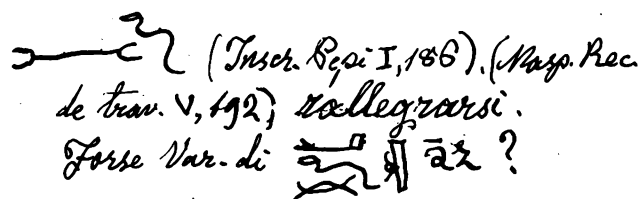 (Inscr. Pepi I, 186), (Masp. Rec.
de trav. V, 192), rallegrarsi.
Forse Var. di āẓ ?